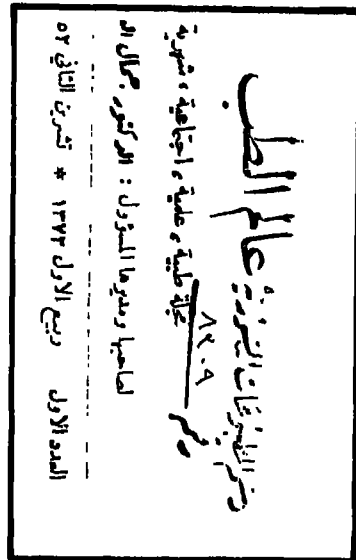 عالم الطب
مجلة طبية، علمية، اجتماعية، شهرية
٨٢٠٩
رقم
لصاحبها ومديرها المسؤول : الدكتور جمال الد
العدد الاول ربيع الاول ١٣٧٢ * تشرين الثاني ٥٢